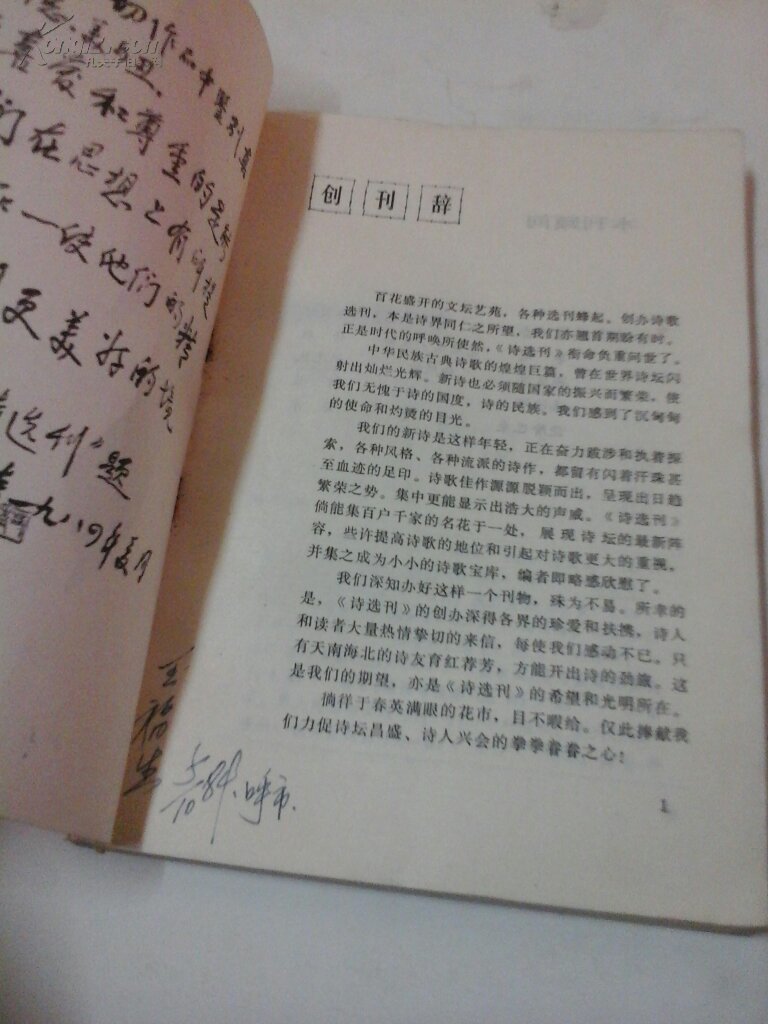 切作品中鉴别真
善、美、丑、
喜爱和尊重的是
们在思想上有所提
一使他们的精
更美好的境
选刊》题
一九八四年夏月
创刊辞
百花盛开的文坛艺苑，各种选刊蜂起。创办诗歌
选刊，本是诗界同仁之所望，我们亦翘首期盼有时。
正是时代的呼唤所使然，《诗选刊》衔命负重问世了。
中华民族古典诗歌的煌煌巨篇，曾在世界诗坛闪
射出灿烂光辉。新诗也必须随国家的振兴而繁荣，使
我们无愧于诗的国度，诗的民族。我们感到了沉甸甸
的使命和灼烫的目光。
我们的新诗是这样年轻，正在奋力跋涉和执着探
索，各种风格、各种流派的诗作，都留有闪着汗珠甚
至血迹的足印。诗歌佳作源源脱颖而出，呈现出日趋
繁荣之势。集中更能显示出浩大的声威。《诗选刊》
倘能集百户千家的名花于一处，展现诗坛的最新阵
容，些许提高诗歌的地位和引起对诗歌更大的重视，
并集之成为小小的诗歌宝库，编者即略感欣慰了。
我们深知办好这样一个刊物，殊为不易。所幸的
是，《诗选刊》的创办深得各界的珍爱和扶携，诗人
和读者大量热情挚切的来信，每使我们感动不已。只
有天南海北的诗友育红荐芳，方能开出诗的劲鬣。这
是我们的期望，亦是《诗选刊》的希望和光明所在。
徜徉于春英满眼的花市，目不暇给。仅此捧献我
们力促诗坛昌盛、诗人兴会的拳拳眷眷之心！
1
呼市.